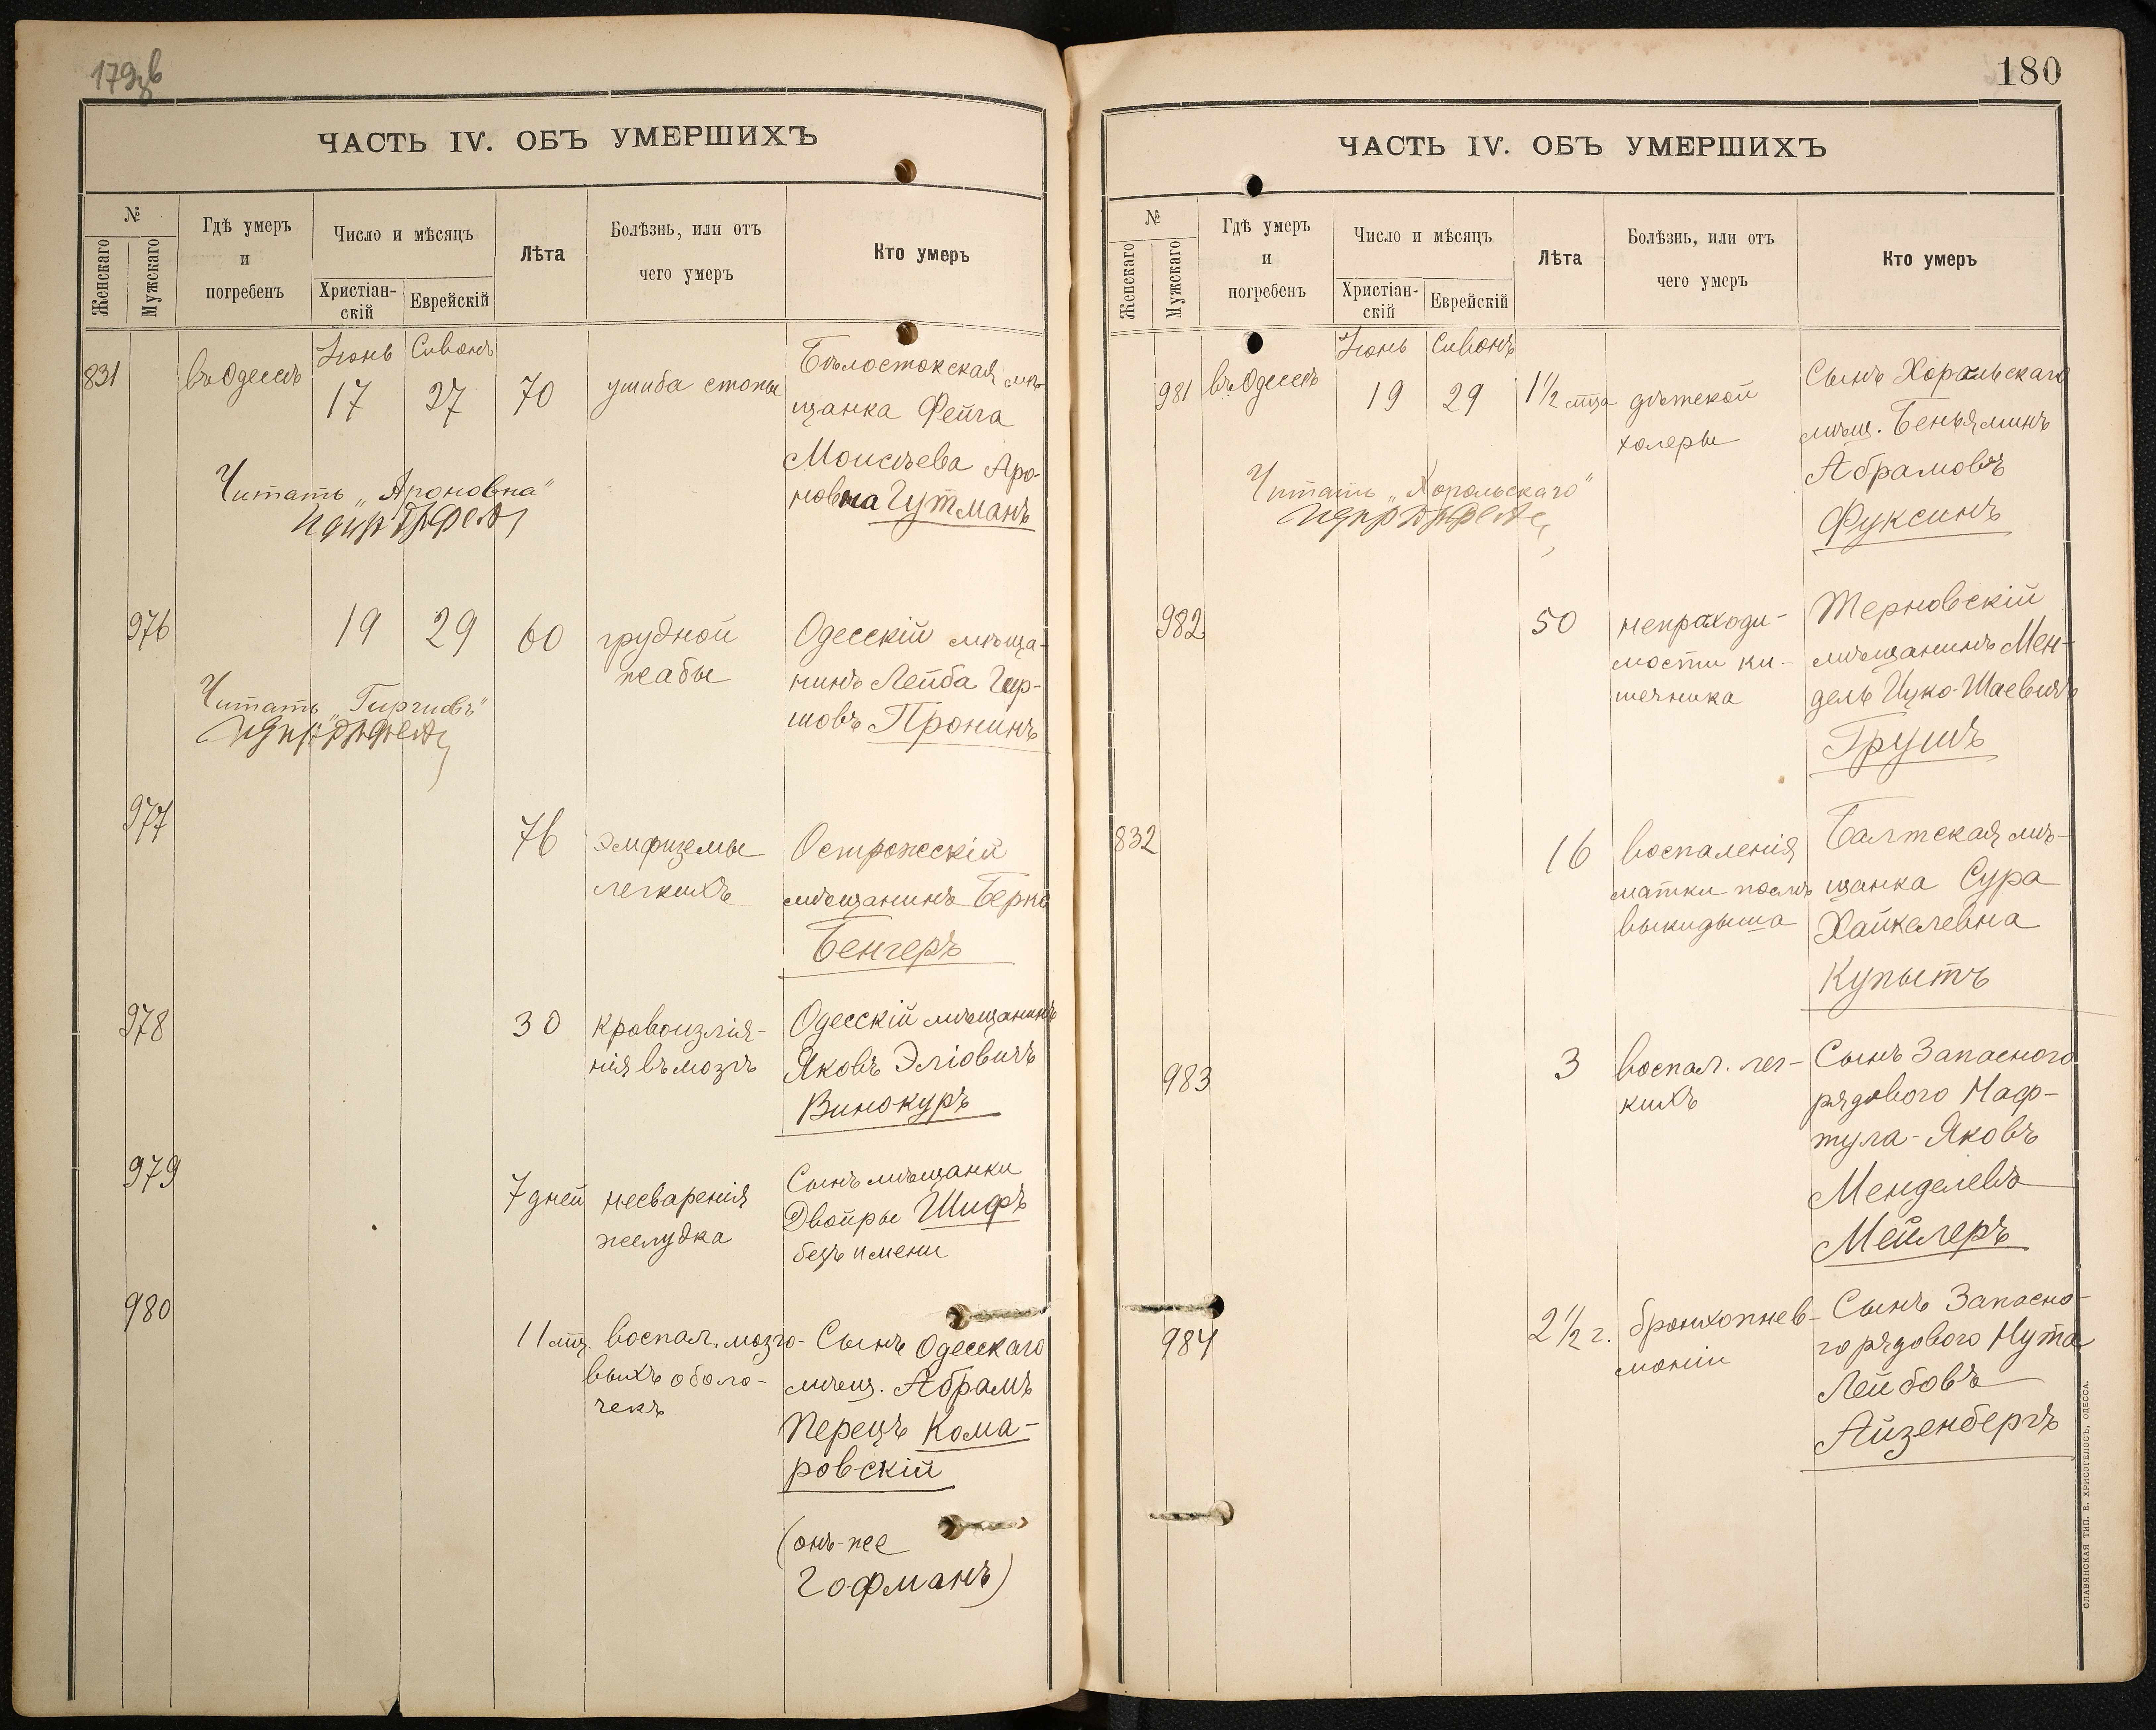 179об
ЧАСТЬ IV. ОБЪ УМЕРШИХЪ
№
Женскаго
Мужскаго
Гдѣ умеръ
и
погребенъ
Число и мѣсяцъ
Христіан-
скій
Еврейскій
Лѣта
Болѣзнь, или отъ
чего умеръ
Кто умеръ
Іюнь Сивонъ
831 въ Одессѣ 17 27 70 ушиба стопы Бѣлостокская мѣ-
щанка Фейга
Моисѣева Аро-
новна Гутманъ
Читать „Ароновна"
976 19 29 60 грудной Одесскій мѣща-
жабы нинъ Лейба Гир-
шовъ Пронинъ
Читать
977 76 эмфиземы Острожскій
легкихъ мѣщанинъ Берко
Бенгеръ
978 30 кровоизлія- Одесскій мѣщанинъ
нія въ мозгъ Яковъ Эліовичъ
Винокуръ
979 7 дней несваренія Сынъ мѣщанки
желудка Двойры Шифъ
безъ имени
980 11 мц. воспал. мозго- Сынъ Одесскаго
выхъ оболо- мѣщ. Абрамъ
чекъ Перецъ Кома-
ровскій
(онъ-же
Гофманъ)
180
ЧАСТЬ IV. ОБЪ УМЕРШИХЪ
№
Женскаго
Мужскаго
Гдѣ умеръ
и
погребенъ
Число и мѣсяцъ
Христіан-
скій
Еврейскій
Лѣта
Болѣзнь, или отъ
чего умеръ
Кто умеръ
Іюнь Сивонъ
981 въ Одессѣ 19 29 1½ мца дѣтской Сынъ Хорольскаго
холеры мѣщ. Беньяминъ
Абрамовъ
Фуксинъ
Читать „Хорольскаго"
982 50 непроходи- Терновскій
мости ки- мѣщанинъ Мен-
шечника дель Ицко-Шаевичъ
Грушъ
832 16 воспаленія Балтская мѣ-
матки послѣ щанка Сура
выкидыша Хайкелевна
Купытъ
983 3 воспал. лег- Сынъ Запасного
кихъ рядового Наф-
тула-Яковъ
Менделевъ
Мейлеръ
984 2½ г. бронхопнев- Сынъ Запасно-
моніи го рядового Нута
Лейбовъ
Айзенбергъ
СЛАВЯНСКАЯ ТИП. Е. ХРИСОГЕЛОСЪ, ОДЕССА.